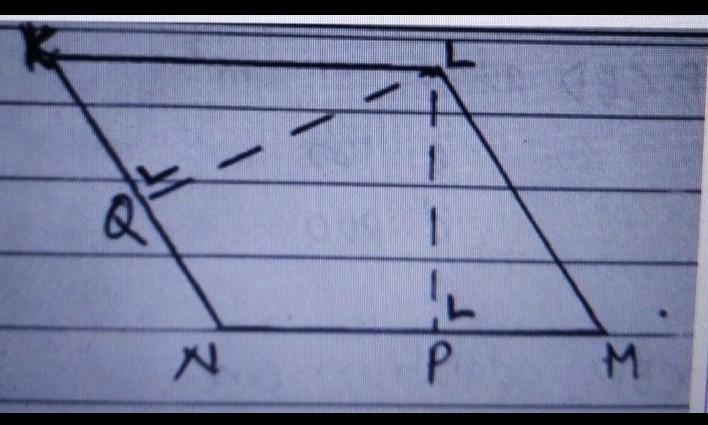 K L
Q
N P M